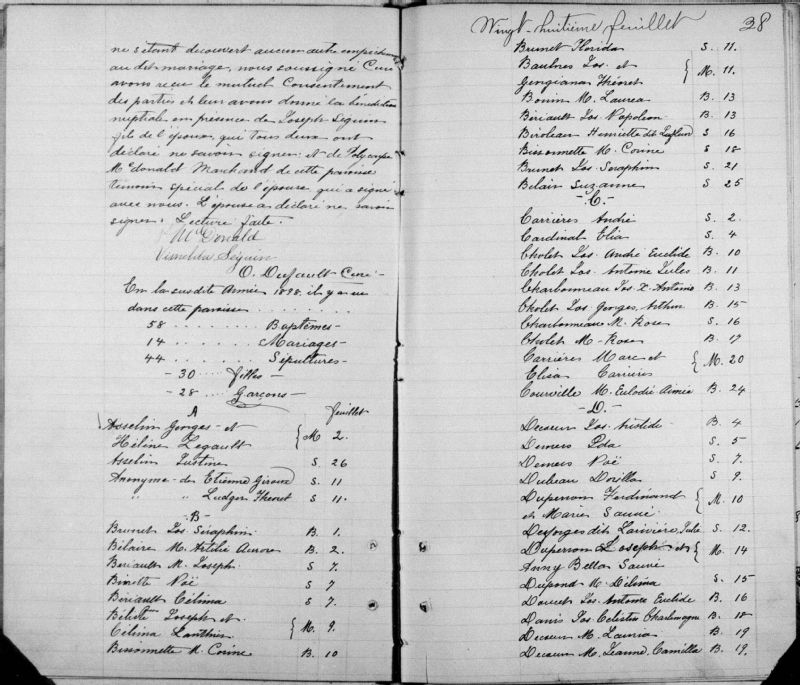 ne s'étant découvert aucun autre empêchem
au dit mariage, nous soussigné Curé
avons reçu le mutuel consentement
des parties et leur avons donné la bénédiction
nuptiale en présence de Joseph Séguin
fils de l'époux, qui tous deux ont
déclaré ne savoir signer. et de Polycarpe
McDonald Marchand de cette paroisse
témoin spécial de l'épouse qui a signé
avec nous. L'épouse a déclaré ne savoir
signer. Lecture faite.
McDonald
Séguin
O. Dufault Curé
En la susdite Année 1898 il y a eu
dans cette paroisse
58 Baptêmes
14 Mariages
44 Sépultures
30 filles
28 Garçons
A feuillet
Asselin Georges et
Hélène Legault } M 2.
Asselin Justine S. 26
Anonyme de Etienne Giroux S. 11
" " Ludger Théoret S 11.
-B-
Brunet Jos. Séraphin B. 1.
Bélaire M. Artélie Aurore B. 2.
Bériault M. Joseph S 7.
Binette Noë S 7
Bériault Célima S 7.
Béliste Joseph et
Célima Lanthier } M. 9.
Bissonnette M. Corine B. 10
Vingt-huitième feuillet 28
Brunet Florida S. 11.
Baulnes Jos. et
Georgiana Théoret { M. 11.
Bonin M. Laurea B. 13
Bériault Jos Napoléon B. 13
Biroleau Henriette dit Lafleur S 16
Bissonnette M. Corine S 18
Brunet Jos Séraphin S. 21
Bélair Suzanne S 25
-C-
Carrières André S. 2.
Cardinal Elia S 4
Cholet Jos. André Euclide B. 10
Cholet Jos. Antonie Jules B. 11
Charbonneau Jos. X. Antonio B. 13
Cholet Jos Georges Arthur B. 15
Charbonneau M. Rose S. 16
Cholet M. Rose B. 17
Carrières Marc et
Elisa Carrières { M. 20
Courville M. Eulodie Aimée B. 24
-D-
Decoeur Jos. Aristide B. 4
Demers Eda S. 5
Demers Noë S. 7.
Dubeau Dorilla S 9.
Duperron Ferdinand
et Marie Sauvé { M. 10
Desforges dit Larivière, Julie S. 12.
Duperron Joseph et
Anny Bella Sauvé { M. 14
Dupond M. Délima S. 15
Doucet Jos. Antonio Euclide B. 16
Danis Jos Célestin Charlemagne B. 18
Decoeur M. Laurea B. 19
Decoeur M. Jeanne. Camilla B. 19.